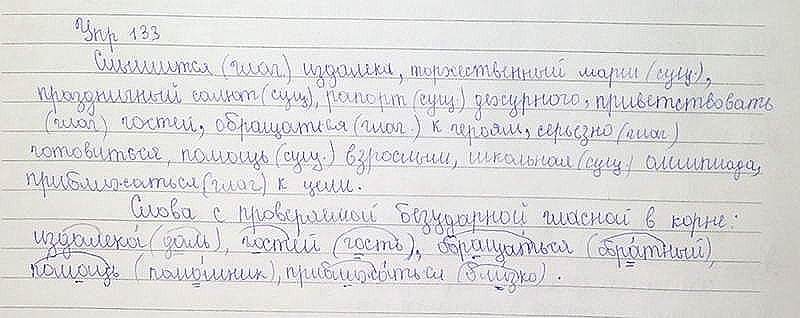 Упр 133
Слышится (глаг.) издалека, торжественный марш (сущ.),
праздничный салют (сущ), рапорт (сущ) дежурного, приветствовать
(глаг) гостей, обращаться (глаг.) к героям, серьезно (глаг)
готовиться, помощь (сущ.) взрослым, школьная (сущ) олимпиада,
приближаться (глаг) к цели.
Слова с проверяемой безударной гласной в корне:
издалека́ (даль), гостей (гость), обращаться (обра́тный),
помощь (помо́щник), приближа́ться (бли́зко).